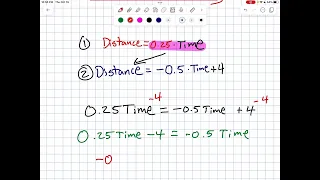 ① Distance = 0.25 · Time
② Distance = -0.5 · Time + 4
-4 -4
0.25 Time = -0.5 Time + 4
0.25 Time - 4 = -0.5 Time
-0